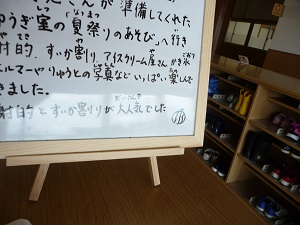 が準備してくれた
ゆうぎ室の夏祭りのあそび」へ行き
射的、すいか割り、アイスクリーム屋さん かき氷
エルマーやりゅうとの写真など いっぱい 楽しんで
きました。
射的とすいか割りが大人気でした